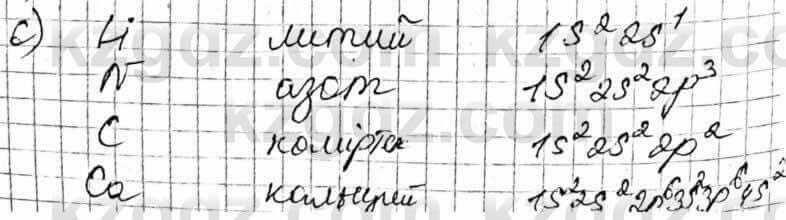 c) Li литий 1s² 2s¹
N азот 1s² 2s² 2p³
C көміртек 1s² 2s² 2p²
Ca кальций 1s² 2s² 2p⁶ 3s² 3p⁶ 4s²